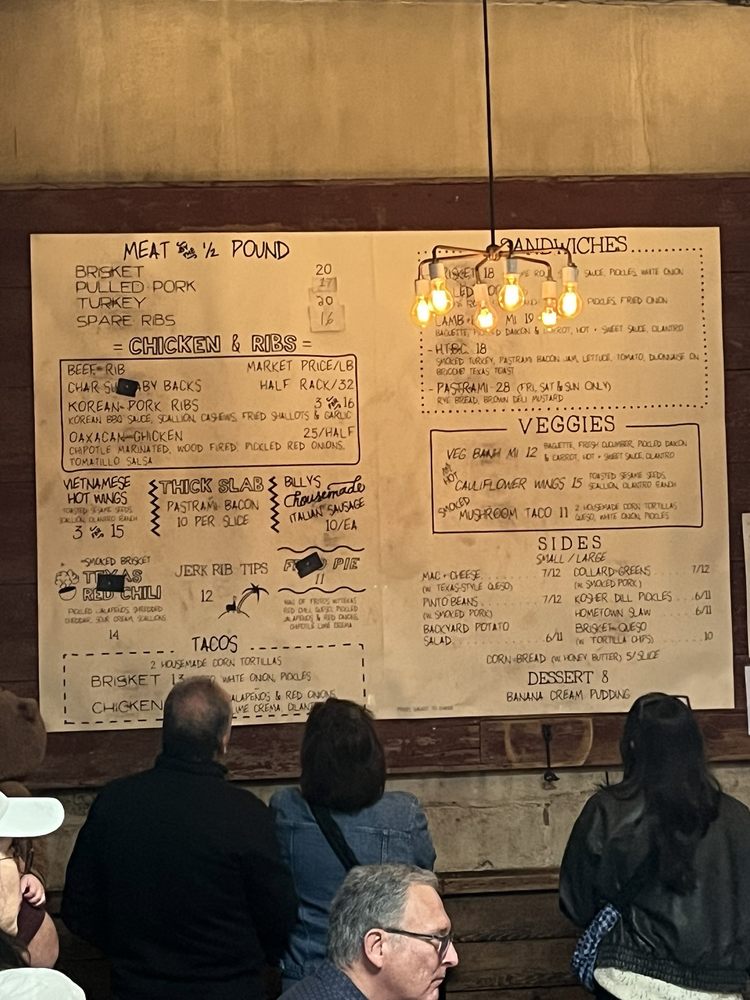 MEAT BY THE 1/2 POUND
BRISKET 20
PULLED PORK 17
TURKEY 20
SPARE RIBS 16
= CHICKEN & RIBS =
BEEF RIB MARKET PRICE/LB
CHAR BABY BACKS HALF RACK/32
KOREAN PORK RIBS 3 FOR 16
KOREAN BBQ SAUCE, SCALLION, CASHEWS, FRIED SHALLOTS & GARLIC
OAXACAN CHICKEN 25/HALF
CHIPOTLE MARINATED, WOOD FIRED PICKLED RED ONIONS,
TOMATILLO SALSA
VIETNAMESE
HOT WINGS
TOASTED SESAME SEEDS,
SCALLION, CILANTRO RANCH
3 FOR 15
THICK SLAB
PASTRAMI BACON
10 PER SLICE
BILLY'S
housemade
ITALIAN SAUSAGE
10/EA
SMOKED BRISKET
TEXAS
RED CHILI
PICKLED JALAPEÑOS, SHREDDED
CHEDDAR, SOUR CREAM, SCALLIONS
14
JERK RIB TIPS
12
PIE
11
BAG OF FRITOS W/TEXAS
RED CHILI, QUESO, PICKLED
JALAPEÑOS & RED ONIONS,
CHIPOTLE LIME CREMA
TACOS
2 HOUSEMADE CORN TORTILLAS
BRISKET 13 WHITE ONION, PICKLES
CHICKEN JALAPEÑOS & RED ONIONS,
LIME CREMA,
SANDWICHES
BRISKET 18 SAUCE, PICKLES, WHITE ONION
PICKLES, FRIED ONION
LAMB MI 19
BAGUETTE, PICKLED DAIKON & CARROT, HOT + SWEET SAUCE, CILANTRO
- H.T.B.C. 18
SMOKED TURKEY, PASTRAMI BACON JAM, LETTUCE, TOMATO, DIJONNAISE ON
BRIOCHE TEXAS TOAST
- PASTRAMI - 28 (FRI, SAT & SUN ONLY)
RYE BREAD, BROWN DELI MUSTARD
VEGGIES
VEG BANH MI 12 BAGUETTE, FRESH CUCUMBER, PICKLED DAIKON
& CARROT, HOT + SWEET SAUCE, CILANTRO
HOT CAULIFLOWER WINGS 15 TOASTED SESAME SEEDS,
SCALLION, CILANTRO RANCH
SMOKED MUSHROOM TACO 11 2 HOUSEMADE CORN TORTILLAS
QUESO, WHITE ONION, PICKLES
SIDES
SMALL / LARGE
MAC + CHEESE 7/12
(W/ TEXAS-STYLE QUESO)
PINTO BEANS 7/12
(W/ SMOKED PORK)
BACKYARD POTATO
SALAD 6/11
COLLARD GREENS 7/12
(W/ SMOKED PORK)
KOSHER DILL PICKLES 6/11
HOMETOWN SLAW 6/11
BRISKET QUESO
(W/ TORTILLA CHIPS) 10
CORN BREAD (W/ HONEY BUTTER) 5/SLICE
DESSERT 8
BANANA CREAM PUDDING